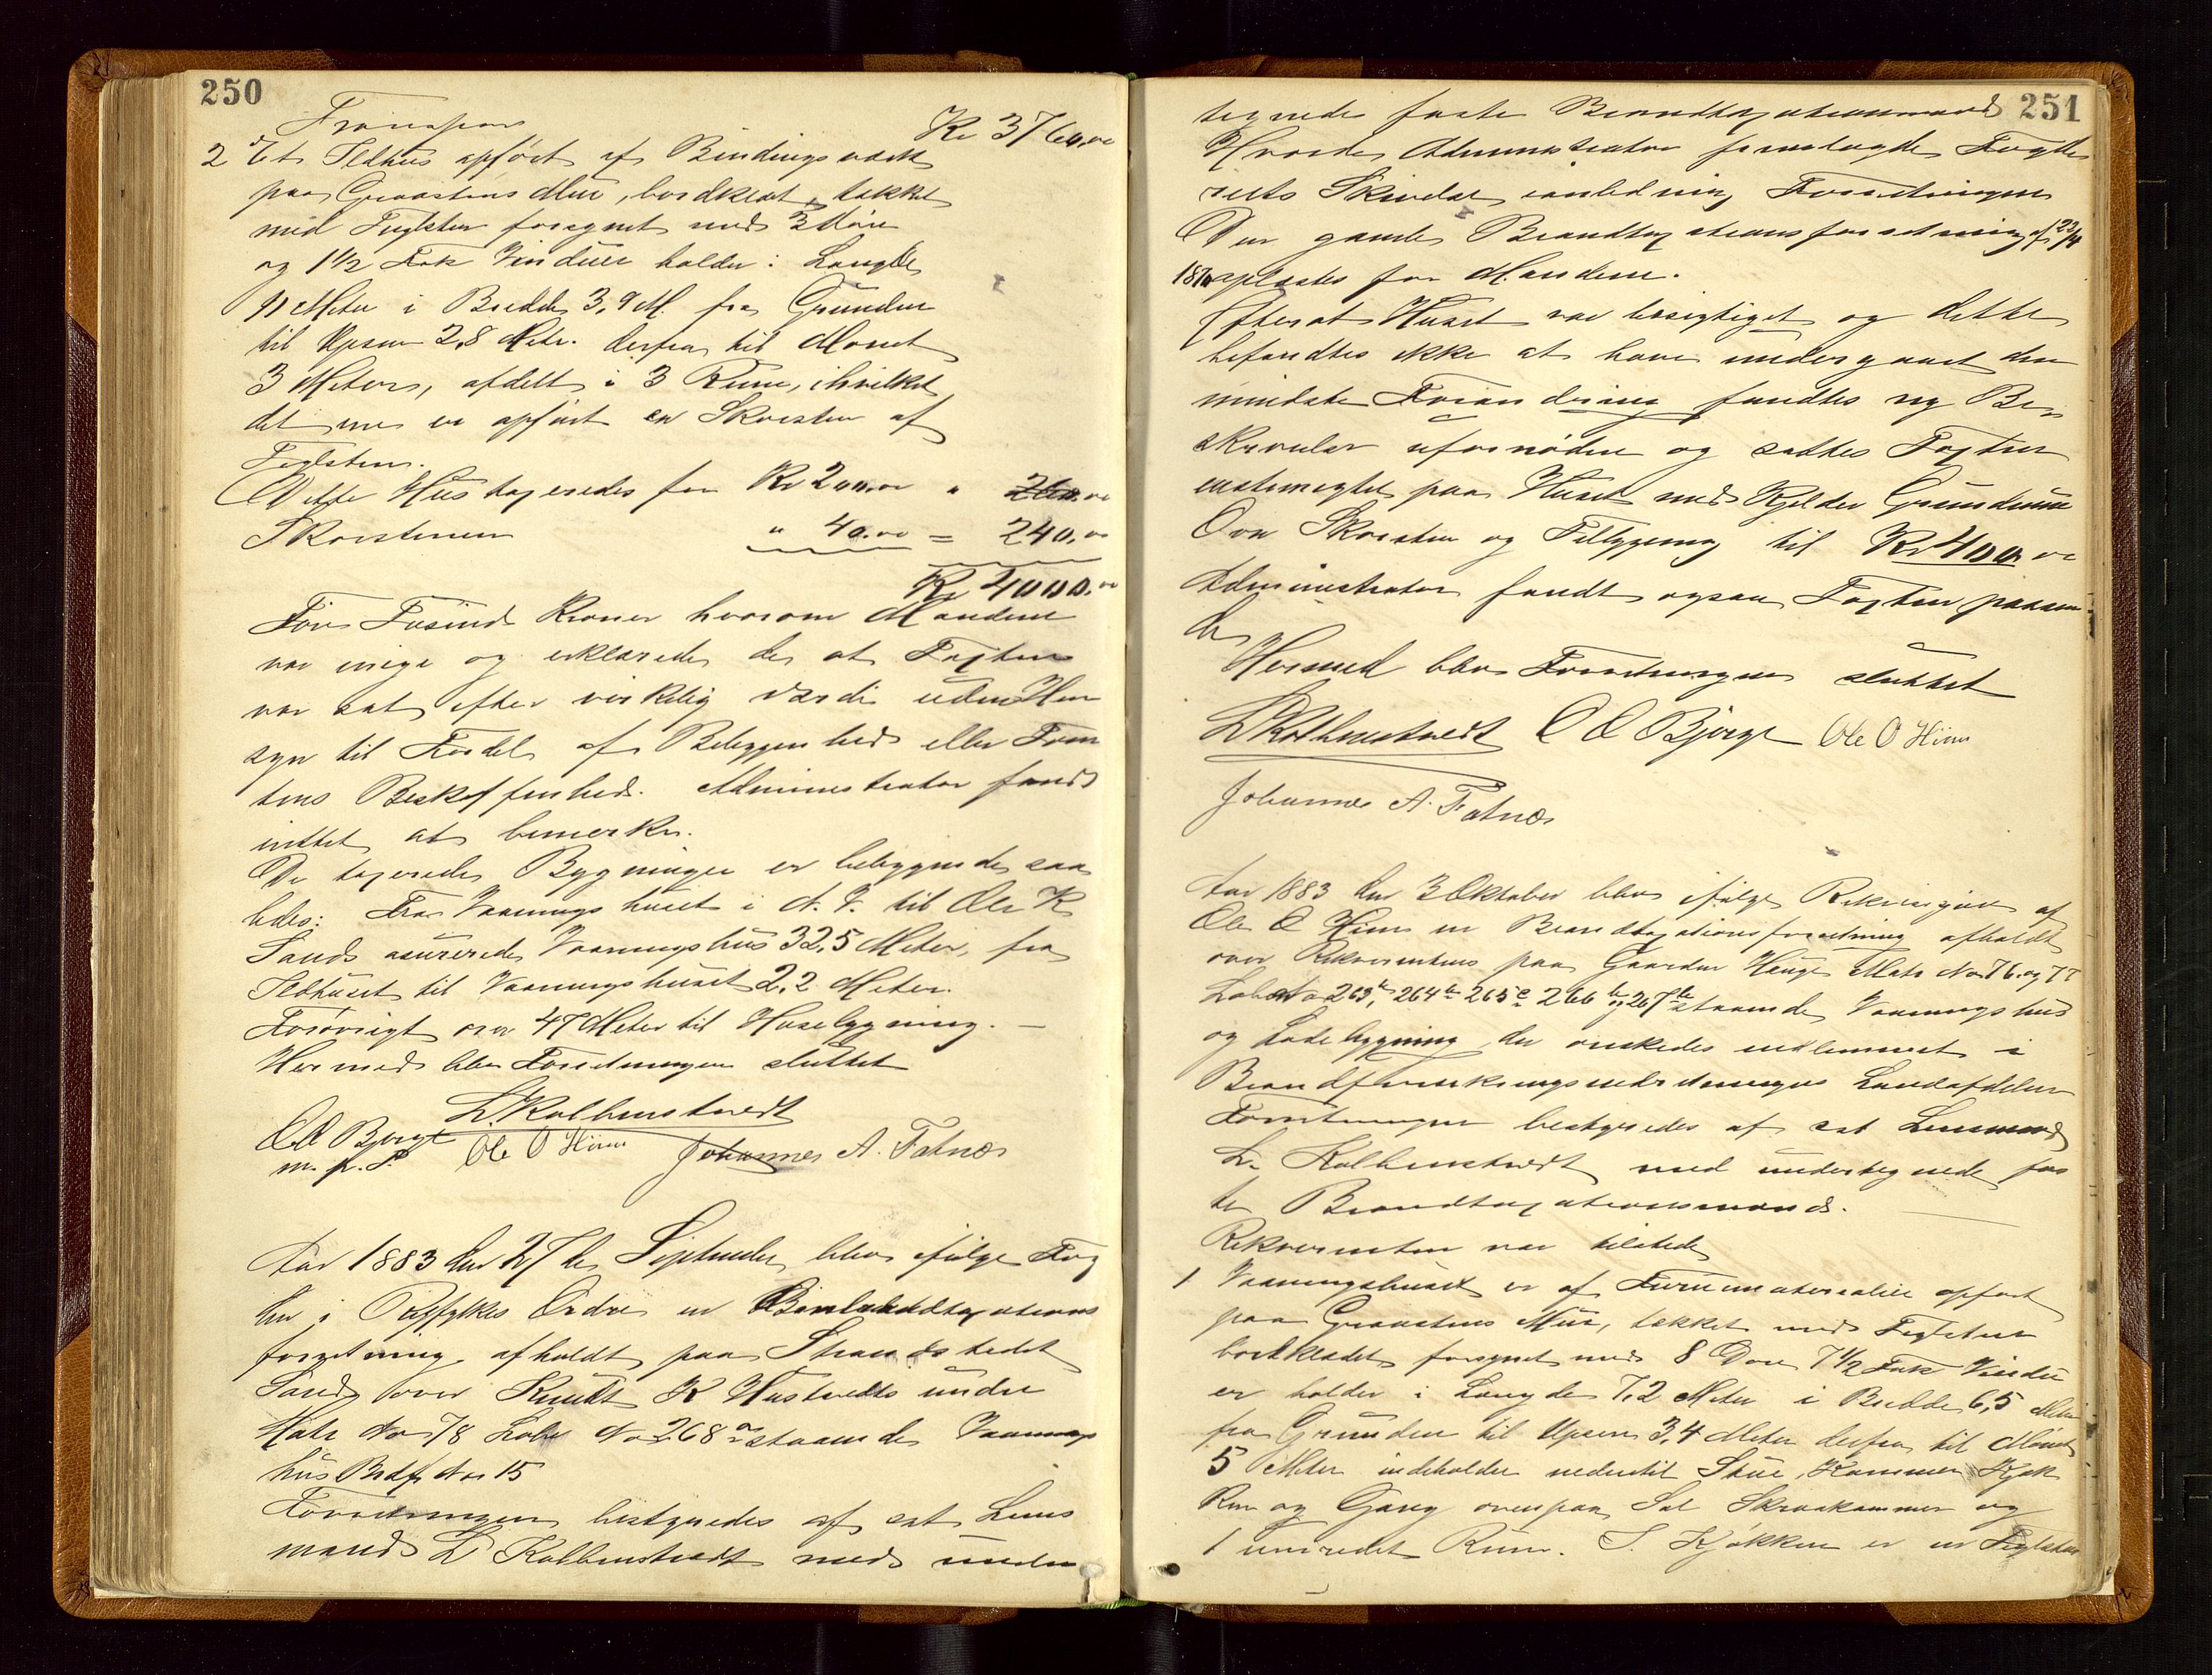 250
Transport Kr 3760,00
2 Et Ildhus opført af Bindingsværk
paa Graastens Muur, bordklædt, tækket
med Teglsten forsynet med 3 Døre
og 1 1/2 Fak Vinduer holder i Længde
11 Meter i Bredde 3,9 M. fra Grunden
til Upsen 2,8 Meter. derfra til Mønet
3 Meter, afdelt i 3 Rum, ihvilket
det ene er opført en Skorsten af
Teglsten.
Dette Hus taxeredes for Kr 200,00 " 200,00
Skorstenen " 40.00 = 240,00
Kr 4000.00
Fire Tusind Kroner hvorom Mændene
var enige og erklærede de at Taxten
var sat efter virkelig Værdi uden Hen
syn til Fordel af Beliggenhed eller Tom
tens Beskaffenhed. Administrator fandt
intet at bemerke.
De taxerede Bygninger er beliggende saa
ledes: Fra Vaaningshuset i N. V. til Ole K
Sands asurerede Vaaningshus 32,5 Meter, fra
Ildhuset til Vaaningshuset 2,2 Meter.
Forøvrigt over 47 Meter til Husebygning. —
Hermed blev Forretningen sluttet
L. Kolbenstvedt
O O Bjerge Ole O Hiim Johannes A. Fatnæs
m. p. P.
Aar 1883 den 27de September blev ifølge Fog
den i Ryfylkes Ordre en Brandtaxations
forretning afholdt paa Strandstedet
Sand over Knudt K Hustvedts under
Matr No 78 Løbe No 268 a staaende Vaanings
hus Brdf No 15
Forretningen bestyredes af cst Lens
mand L Kolbenstvedt med under
251
tegnede faste Brandtaxationsmænd
Hvorda Administrator fremlagde Fogde
riets Skrivelse ianledning Forretningen
Den gamle Brandtaxationsforretning af 23/4
187 oplæstes for Mændene.
Efterat Huset var besigtiget og dette
befandtes ikke at have undergaaet den
mindste Forandring fandtes ny Be
skrivelse ufornøden og sattes Taxten
enstemigt paa Huset med Kjelder Grundmur
Ovn Skorsten og Tilbygning til Kr 400,00
Administrator fandt ogsaa Taxten passen
de
Hermed blev Forretningen sluttet
L Kolbenstvedt O O Bjerge Ole O Hiim
Johannes A. Fatnæs
Aar 1883 den 3 Oktober blev ifølge Rekvisition af
Ole O Hiim en Brandtaxationsforretning afholdt
over Rekvirentens paa Gaarden Hauge Matr No 76 og 77
Løbe No 263, 264 265 266 og 267 staaende Vaaningshus
og Ladebygning der ønskedes indlemmet i
Brandforsikringsindretningens Landafdeling
Forretningen bestyredes af cst Lensmand
L. Kolbenstvedt med undertegnede fas
te Brandtaxationsmænd.
Rekvirenten var tilstede
1 Vaaningshuset er af Furumaterialier opført
paa Graastens Muur, tækket med Teglsten
bordklædt forsynet med 8 Døre 7 1/2 Fak Vindu
er holder i Længde 7,2 Meter i Bredde 6,5 Meter
fra Grunden til Upsen 3,4 Meter derfra til Mønet
5 Meter indeholder nedentil Stue, Kammer Kjøk
ken og Gang ovenpaa Sal Skraakammer og
1 uinredet Rum. I Kjøkken er en Teglstens